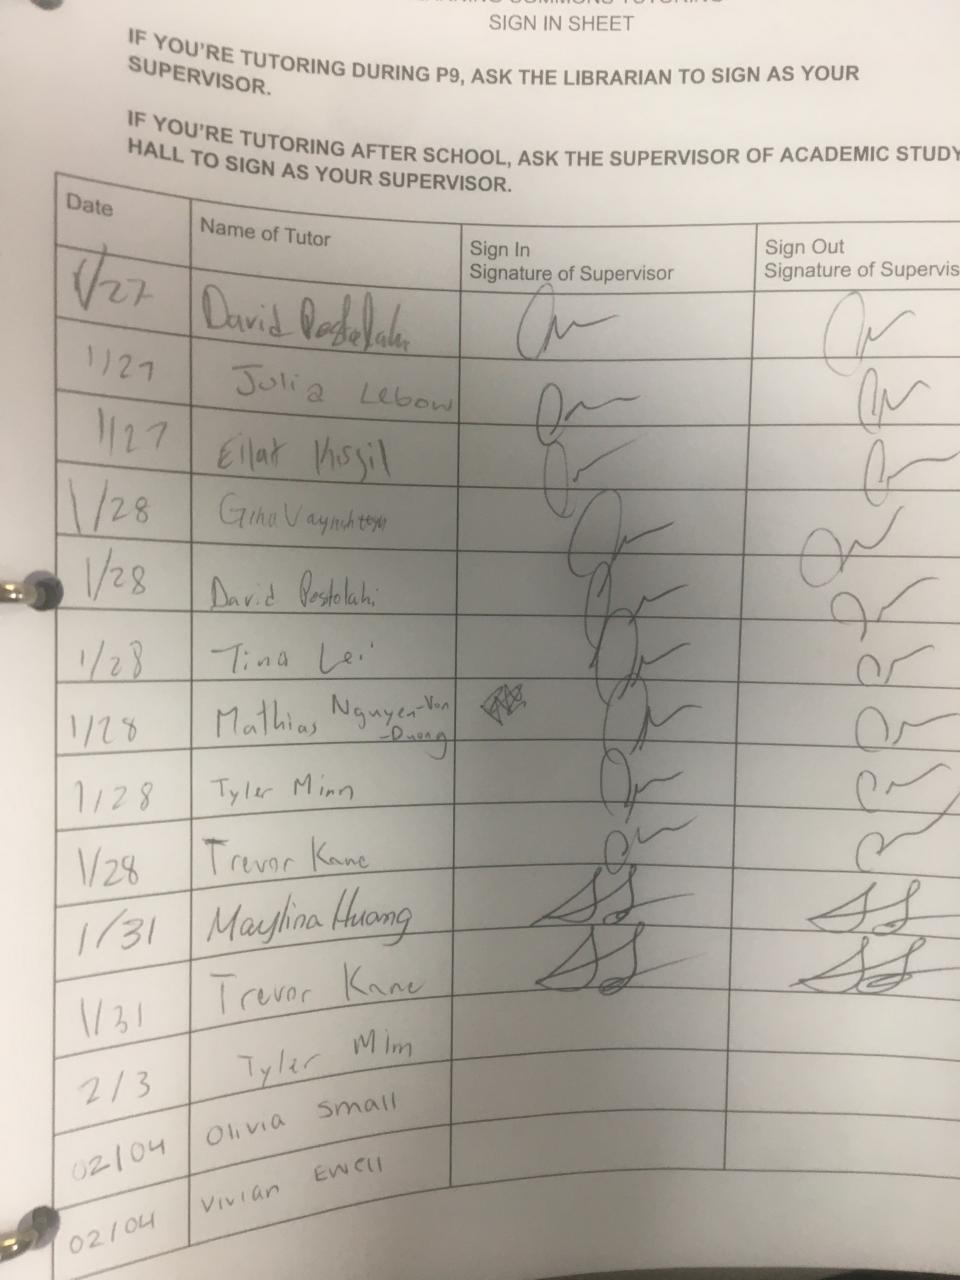 SIGN IN SHEET
IF YOU'RE TUTORING DURING P9, ASK THE LIBRARIAN TO SIGN AS YOUR
SUPERVISOR.
IF YOU'RE TUTORING AFTER SCHOOL, ASK THE SUPERVISOR OF ACADEMIC STUDY
HALL TO SIGN AS YOUR SUPERVISOR.
Date Name of Tutor Sign In Sign Out
Signature of Supervisor Signature of Supervis
1/27 David Postolahi
1/27 Julia Lebow
1/27 Eilat Kissil
1/28 Gina
1/28 David Postolahi
1/28 Tina Lei
1/28 Mathias Nguyen-Van
-Duong
1/28 Tyler Minn
1/28 Trevor Kane
1/31 Maylina Huang
1/31 Trevor Kane
2/3 Tyler
02/04 Olivia Small
02/04 Vivian Ewell